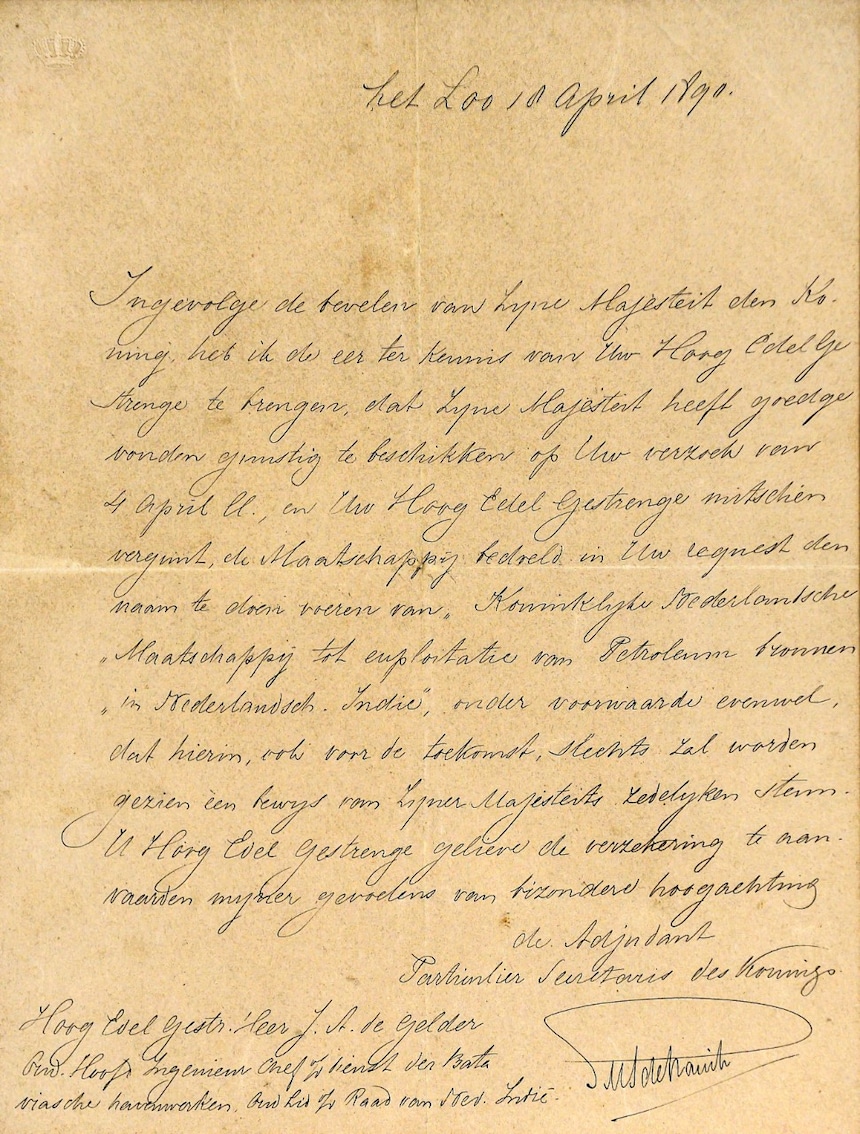 het Loo 18 April 1890.
Ingevolge de bevelen van Zyne Majesteit den Ko-
ning, heb ik de eer ter kennis van Uw Hoog Edel Ge
strenge te brengen, dat Zyne Majesteit heeft goedge
vonden gunstig te beschikken op Uw verzoek van
4 April ll., en Uw Hoog Edel Gestrenge mitsdien
vergunt, de Maatschappij bedoeld in Uw request den
naam te doen voeren van „Koninklijke Nederlandsche
„Maatschappij tot exploitatie van Petroleum bronnen
„in Nederlandsch-Indië”, onder voorwaarde evenwel,
dat hierin, ook voor de toekomst, slechts zal worden
gezien een bewys van Zyner Majesteits zedelyken steun.
U Hoog Edel Gestrenge gelieve de verzekering te aan-
vaarden myner gevoelens van bizondere hoogachting
de Adjudant
Particulier Secretaris des Konings
Hoog Edel Gestr. Heer J. A. de Gelder
Oud. Hoofd Ingenieur Chef dienst der Bata
viasche havenwerken, Oud Lid Raad van Ned. Indië.